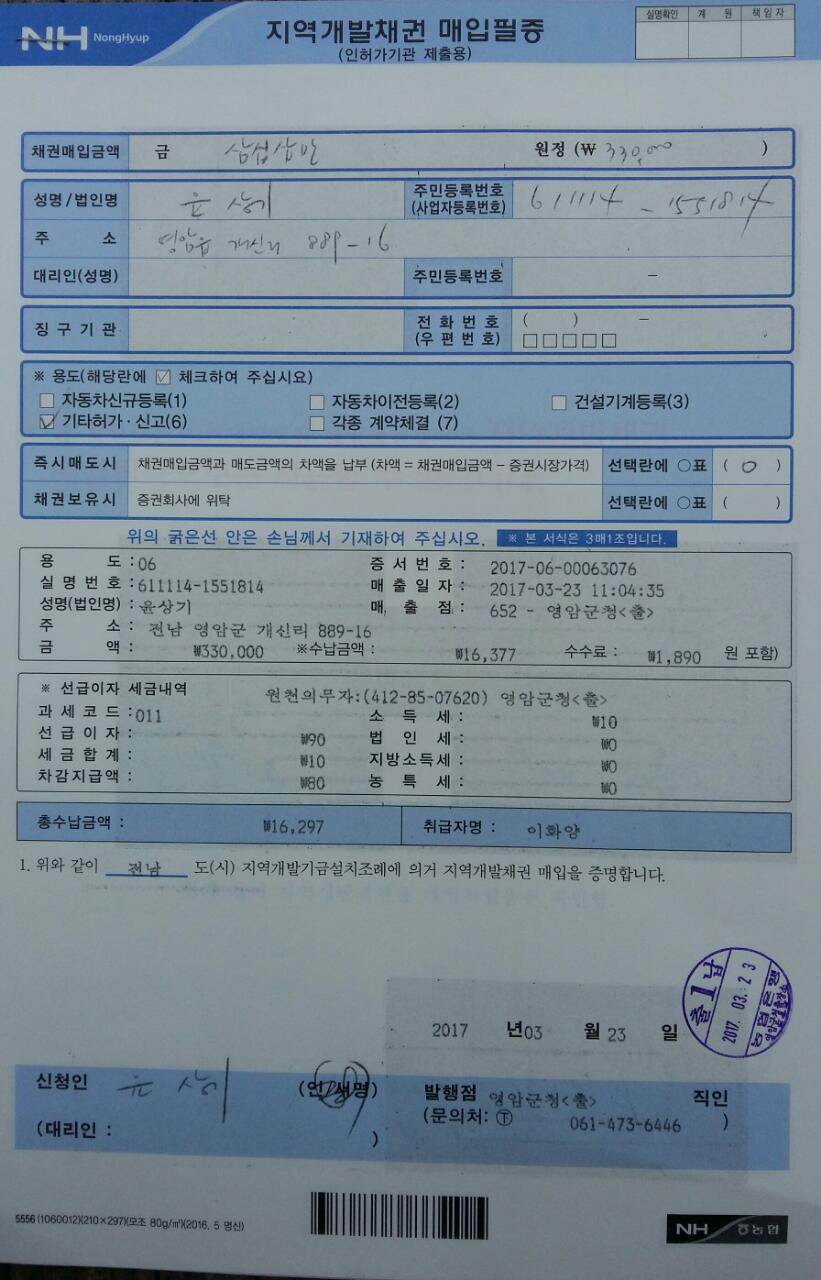 NH NongHyup
지역개발채권 매입필증
(인허가기관 제출용)
실명확인 계 원 책 임 자
채권매입금액 금 삼십삼만 원정 (₩ 330,000 )
성명/법인명 윤상기 주민등록번호 (사업자등록번호) 611114 - 1551814
주 소 영암읍 개신리 889-16
대리인(성명) 주민등록번호 -
징 구 기 관 전 화 번 호 ( ) -
(우 편 번 호) □□□□□
※ 용도(해당란에 ☑ 체크하여 주십시요)
□ 자동차신규등록(1) □ 자동차이전등록(2) □ 건설기계등록(3)
☑ 기타허가·신고(6) □ 각종 계약체결 (7)
즉시매도시 채권매입금액과 매도금액의 차액을 납부 (차액 = 채권매입금액 - 증권시장가격) 선택란에 ○표 ( O )
채권보유시 증권회사에 위탁 선택란에 ○표 ( )
위의 굵은선 안은 손님께서 기재하여 주십시오. ※ 본 서식은 3매1조입니다.
용 도 : 06 증 서 번 호 : 2017-06-00063076
실 명 번 호 : 611114-1551814 매 출 일 자 : 2017-03-23 11:04:35
성명(법인명) : 윤상기 매 출 점 : 652 - 영암군청<출>
주 소 : 전남 영암군 개신리 889-16
금 액 : ₩330,000 ※수납금액 : ₩16,377 수수료 : ₩1,890 원 포함)
※ 선급이자 세금내역 원천의무자:(412-85-07620) 영암군청<출>
과 세 코 드 : 011 소 득 세 : ₩10
선 급 이 자 : ₩90 법 인 세 : ₩0
세 금 합 계 : ₩10 지방소득세 : ₩0
차감지급액 : ₩80 농 특 세 : ₩0
총수납금액 : ₩16,297 취급자명 : 이화양
1. 위와 같이 전남 도(시) 지역개발기금설치조례에 의거 지역개발채권 매입을 증명합니다.
출1납
2017. 03. 2 3
농협은행
2017 년 03 월 23 일
신청인 윤상기 (인/서명) 발행점 영암군청<출> 직인
(대리인 : ) (문의처: Ⓣ 061-473-6446 )
5556 (1060012)(210×297)(모조 80g/㎡)(2016. 5 명신)
NH 농협